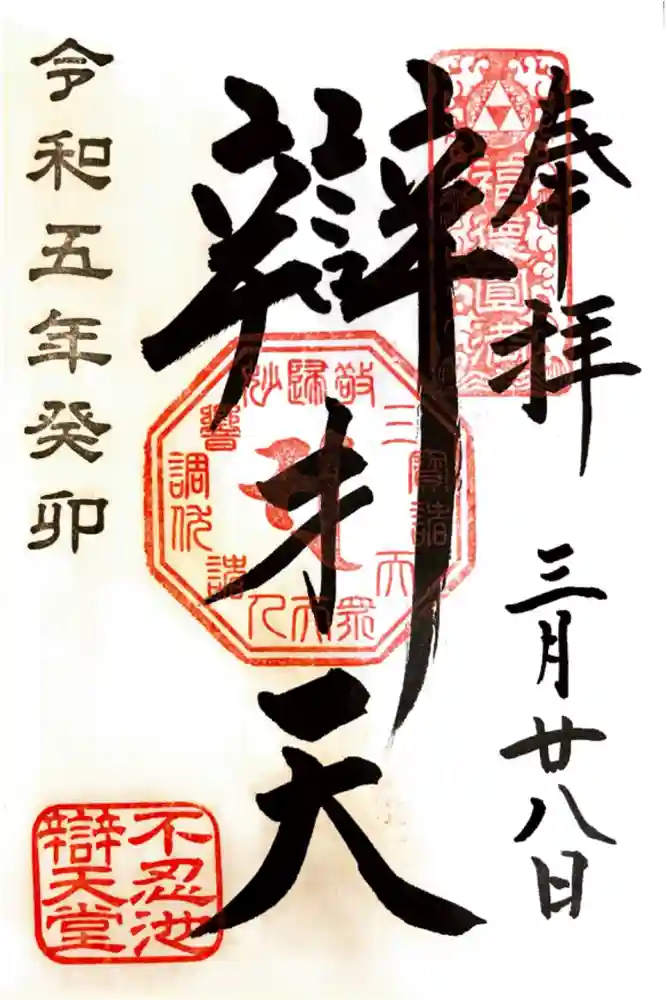 奉拝
三月廿八日
辯才天
令和五年癸卯
不忍池
辯天堂